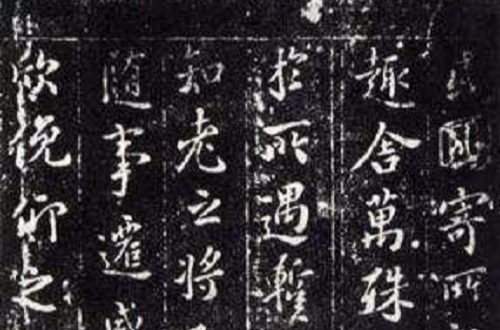 因寄所
趣舍萬殊
於所遇暫
知老之將
隨事遷感
欣俛仰之